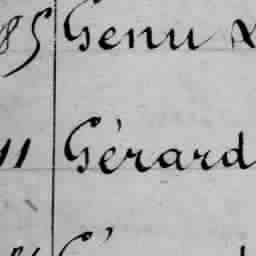 85 Genu &
11 Gérard